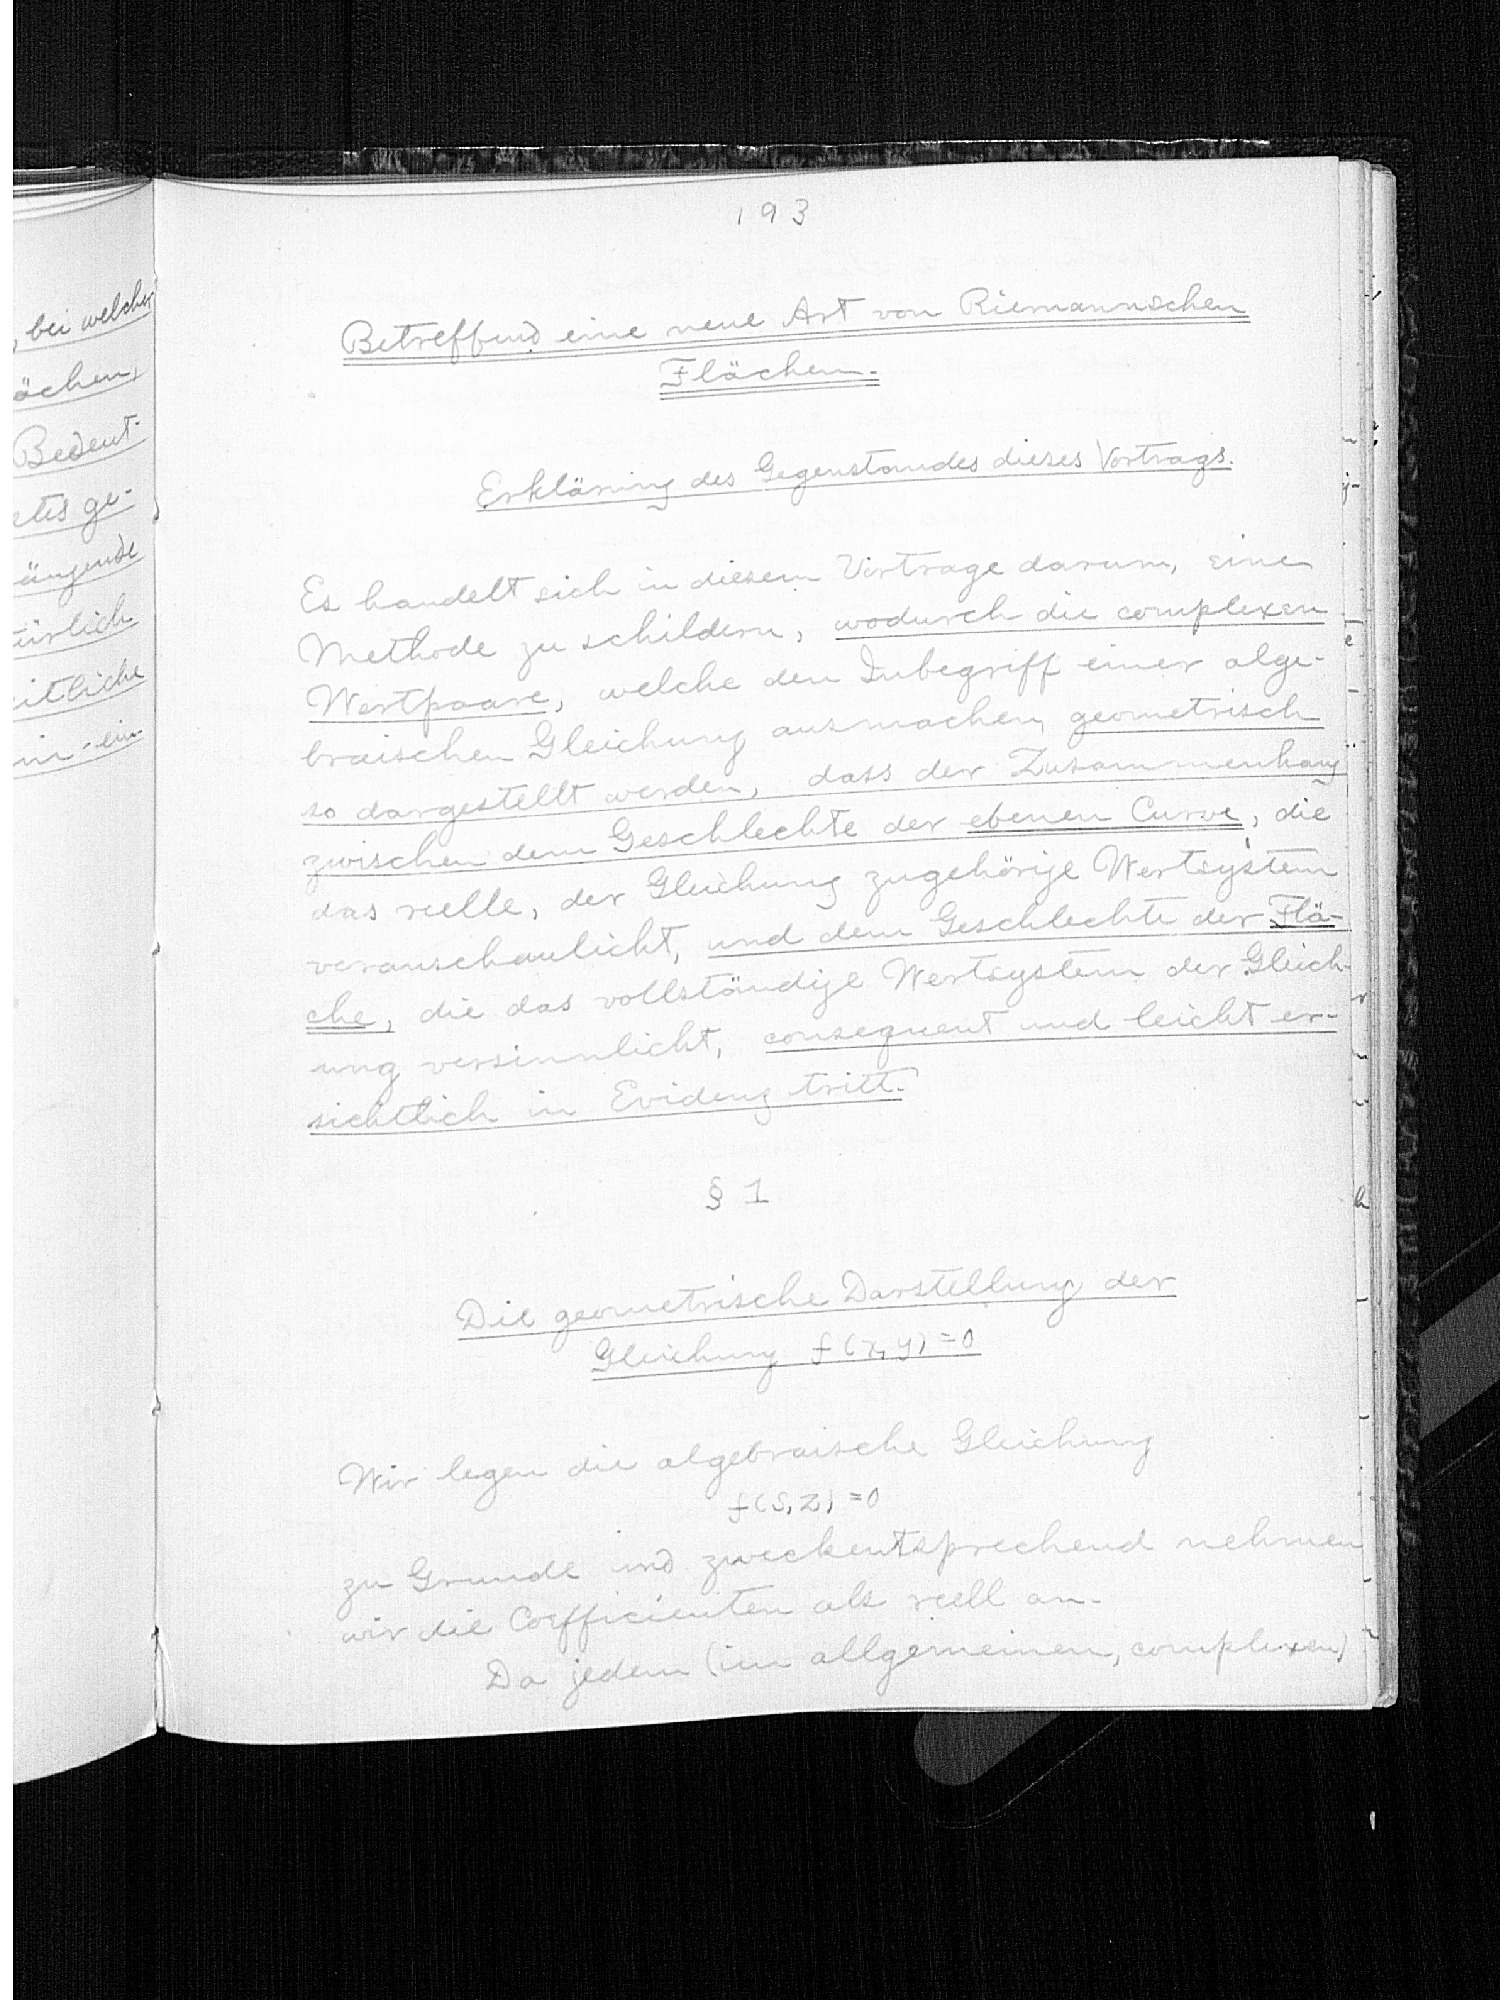 , bei welcher
ächen,
Bedeut-
ge-
ängende
ürlich
eitliche
ein-
193
Betreffend eine neue Art von Riemannschen
Flächen.
Erklärung des Gegenstandes dieses Vortrags.
Es handelt sich in diesem Vortrage darum, eine
Methode zu schildern, wodurch die complexen
Wertpaare, welche den Inbegriff einer alge-
braischen Gleichung ausmachen, geometrisch
so dargestellt werden, dass der Zusammenhang
zwischen dem Geschlechte der ebenen Curve, die
das reelle, der Gleichung zugehörige Wertsystem
veranschaulicht, und dem Geschlechte der Flä-
che, die das vollständige Wertsystem der Gleich-
ung versinnlicht, consequent und leicht er-
sichtlich in Evidenz tritt.
§ 1
Die geometrische Darstellung der
Gleichung f(x,y)=0
Wir legen die algebraische Gleichung
f(s,z)=0
zu Grunde und zweckentsprechend nehmen
wir die Coefficienten als reell an.
Da jedem (im allgemeinen, complexen)